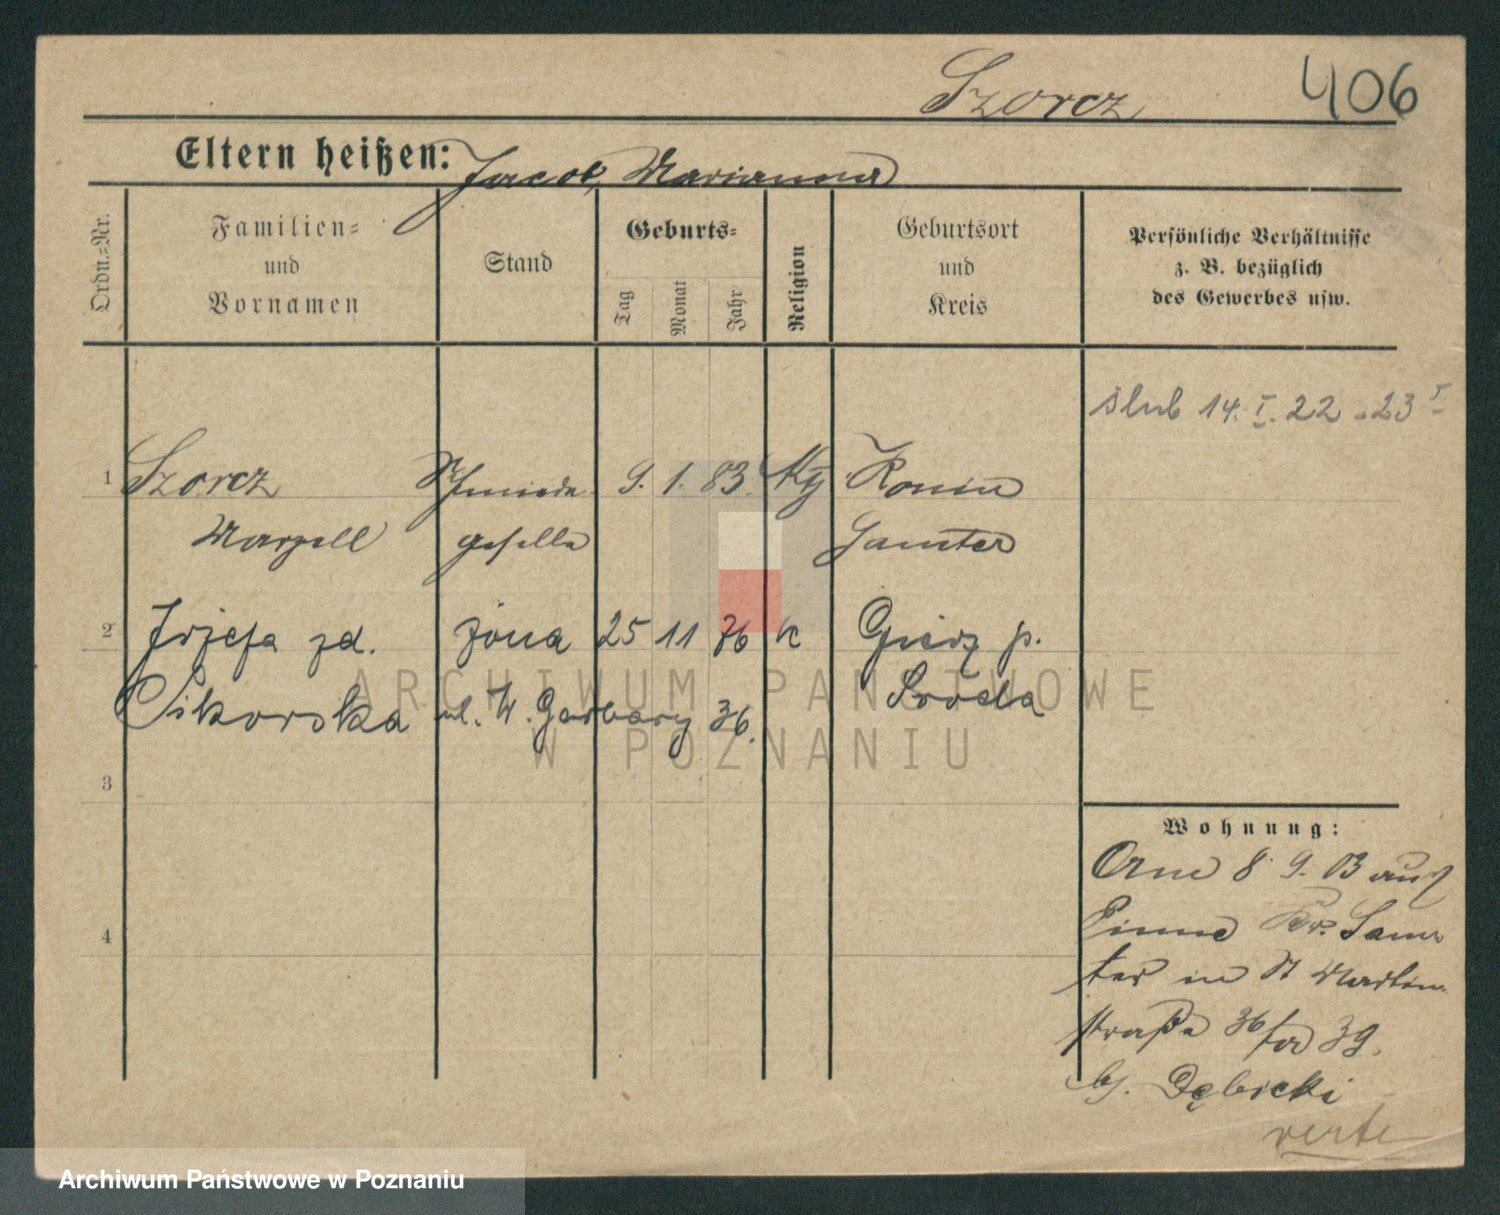 Szorcz 406
Eltern heißen: Jacob, Marianna
Ordn.=Nr.
Familien=
und
Vornamen
Stand
Geburts=
Tag
Monat
Jahr
Religion
Geburtsort
und
Kreis
Persönliche Verhältnisse
z. B. bezüglich
des Gewerbes usw.
ślub 14. I. 22 - 23 I
1 Szorcz Schmiede 9. 1. 83. Konin
Marzell geselle Samter
2 Józefa zd. żona 25 11 76 k Giecz p.
Sikorska ul. W. Garbary 36. Środa
3
4
Wohnung:
Am 8 9. 03 aus
Pinne Kr. Sam
ter in St Martin
straße 36 39.
b/. Dębicki
verte
ARCHIWUM PAŃSTWOWE
W POZNANIU
Archiwum Państwowe w Poznaniu